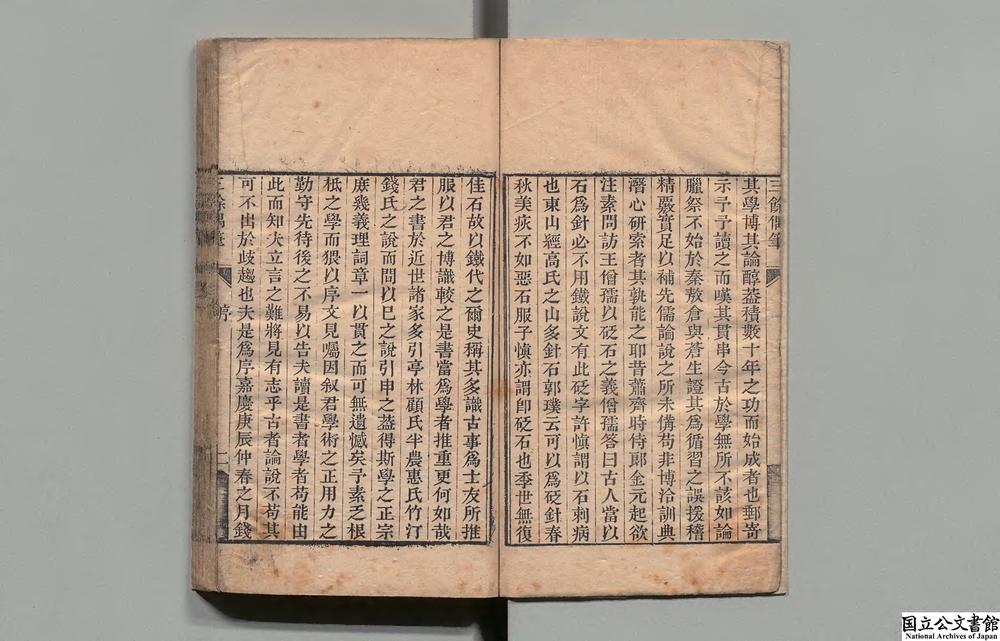 其學博其論醇葢積數十年之功而始成者也郵寄
示予予讀之而嘆其貫串今古於學無所不該如論
臘祭不始於秦敖倉與蒼生證其爲循習之誤援稽
精嚴實足以補先儒論說之所未備苟非博洽訓典
潛心研索者其孰能之耶昔蕭齊時侍郎金元起欲
注素問訪王僧孺以砭石之義僧孺答曰古人當以
石爲針必不用鐵說文有此砭字許慎謂以石刺病
也東山經高氏之山多針石郭璞云可以爲砭針春
秋美疢不如惡石服子愼亦謂卽砭石也季世無復
佳石故以鐵代之爾史稱其多識古事爲士友所推
服以君之博識較之是書當爲學者推重更何如哉
君之書於近世諸家多引亭林顧氏半農惠氏竹汀
錢氏之說而間以已之說引申之葢得斯學之正宗
庶幾義理詞章一以貫之而可無遺憾矣予素乏根
柢之學而猥以序文見囑因叙君學術之正用力之
勤守先待後之不易以告夫讀是書者學者苟能由
此而知夫立言之難將見有志乎古者論說不苟其
可不出於歧趨也夫是爲序嘉慶庚辰仲春之月錢
三餘偶筆
序
二
国立公文書館
National Archives of Japan